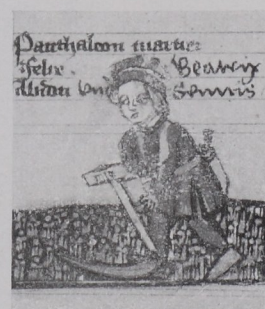 Panthaleon martir
Felix . Beatrix
Abdon vn Sennis